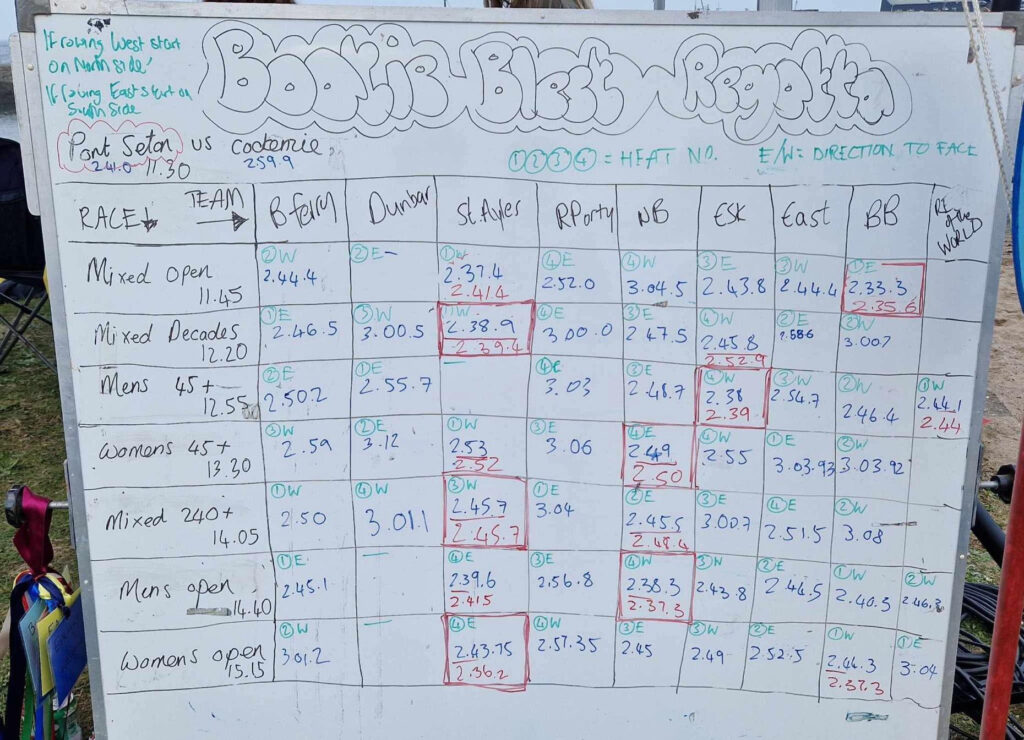 If rowing West start
on North side
If rowing East start on
South side
Bootie Blast Regatta
Port Seton vs Cockenzie
2.41.0 11.30 259.9
①②③④ = HEAT NO. E/W = DIRECTION TO FACE
RACE↓ TEAM → B ferry Dunbar St Ayles R Porty NB ESK East BB R of the WORLD
Mixed Open 11.45 ②W 2.44.4 ②E – ①W 2.37.4 2.41.4 ④E 2.52.0 ④W 3.04.5 ③E 2.43.8 ③W 2.44.4 ①E 2.33.3 2.35.6
Mixed Decades 12.20 ①E 2.46.5 ③W 3.00.5 ①W 2.38.9 2.39.4 ④E 3.00.0 ③E 2.47.5 ④W 2.45.8 2.52.9 ②E 2.58.6 ②W 3.00.7
Mens 45+ 12.55 ②E 2.50.2 ①E 2.55.7 ④E 3.03 ③E 2.48.7 ④W 2.38 2.39 ③W 2.54.7 ②W 2.46.4 ①W 2.44.1 2.44
Womens 45+ 13.30 ③W 2.59 ②E 3.12 ①W 2.53 2.52 ③E 3.06 ④E 2.49 2.50 ④W 2.55 ①E 3.03.93 ②W 3.03.92
Mixed 240+ 14.05 ①W 2.50 ④W 3.01.1 ③W 2.45.7 2.45.7 ①E 3.04 ②E 2.45.5 2.48.4 ③E 3.00.7 ④E 2.51.5 ②W 3.08
Mens open 14.40 ①E 2.45.1 – ④E 2.39.6 2.41.5 ③E 2.56.8 ④W 2.38.3 2.37.3 ③W 2.43.8 ②E 2.44.5 ①W 2.40.3 ②W 2.46.3
Womens open 15.15 ②W 3.01.2 – ④E 2.43.75 2.36.2 ④W 2.57.35 ③E 2.45 ③W 2.49 ②E 2.52.5 ①W 2.44.3 2.37.3 ①E 3.04